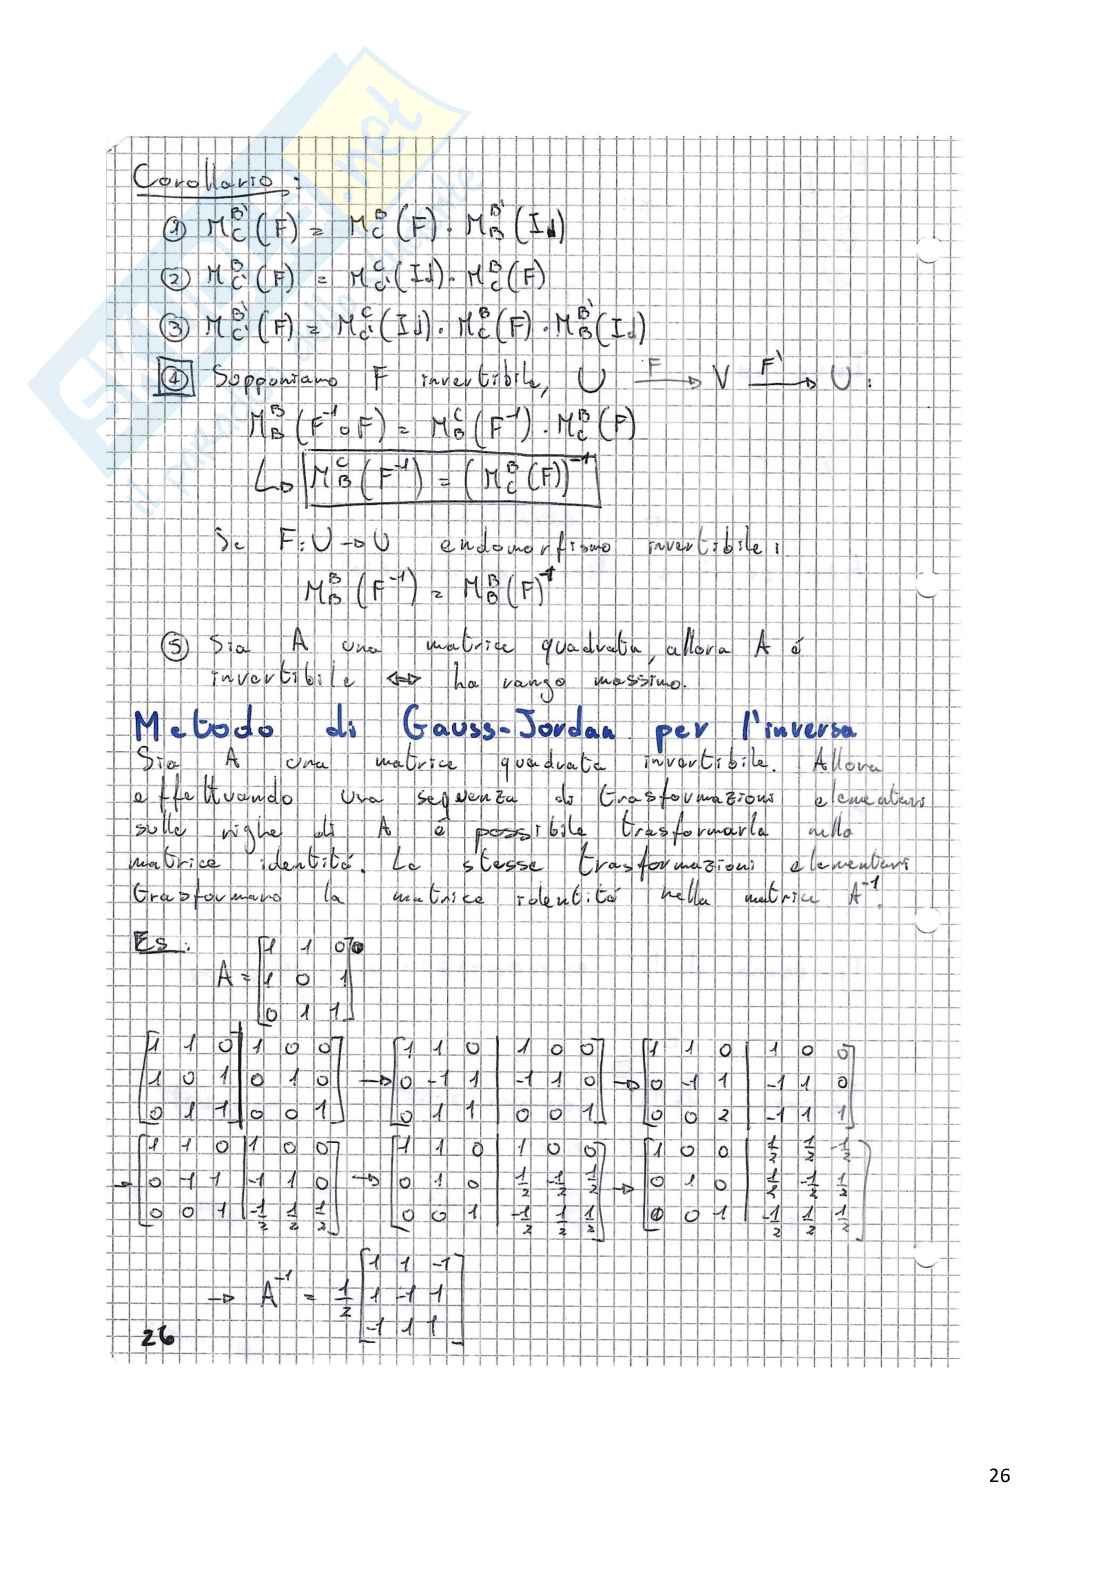 Corollario:
① M_C^{B'}(F) = M_C^B(F) · M_B^{B'}(Id)
② M_{C'}^B(F) = M_{C'}^C(Id) · M_C^B(F)
③ M_{C'}^{B'}(F) = M_{C'}^C(Id) · M_C^B(F) · M_B^{B'}(Id)
④ Supponiamo F invertibile, U —F→ V —F^{-1}→ U :
M_B^B(F^{-1} ∘ F) = M_B^C(F^{-1}) · M_C^B(F)
↳ M_B^C(F^{-1}) = (M_C^B(F))^{-1}
Se F: U → U endomorfismo invertibile:
M_B^B(F^{-1}) = M_B^B(F)^{-1}
⑤ Sia A una matrice quadrata, allora A é
invertibile ⟺ ha rango massimo.
Metodo di Gauss-Jordan per l'inversa
Sia A una matrice quadrata invertibile. Allora
effettuando una sequenza di trasformazioni elementari
sulle righe di A é possibile trasformarla nella
matrice identitá. Le stesse trasformazioni elementari
trasformano la matrice identitá nella matrice A^{-1}.
Es:
A = [1 1 0; 1 0 1; 0 1 1]
[1 1 0 | 1 0 0; 1 0 1 | 0 1 0; 0 1 1 | 0 0 1] → [1 1 0 | 1 0 0; 0 -1 1 | -1 1 0; 0 1 1 | 0 0 1] → [1 1 0 | 1 0 0; 0 -1 1 | -1 1 0; 0 0 2 | -1 1 1]
→ [1 1 0 | 1 0 0; 0 -1 1 | -1 1 0; 0 0 1 | -1/2 1/2 1/2] → [1 1 0 | 1 0 0; 0 1 0 | 1/2 -1/2 1/2; 0 0 1 | -1/2 1/2 1/2] → [1 0 0 | 1/2 1/2 -1/2; 0 1 0 | 1/2 -1/2 1/2; 0 0 1 | -1/2 1/2 1/2]
→ A^{-1} = 1/2 [1 1 -1; 1 -1 1; -1 1 1]
26
26